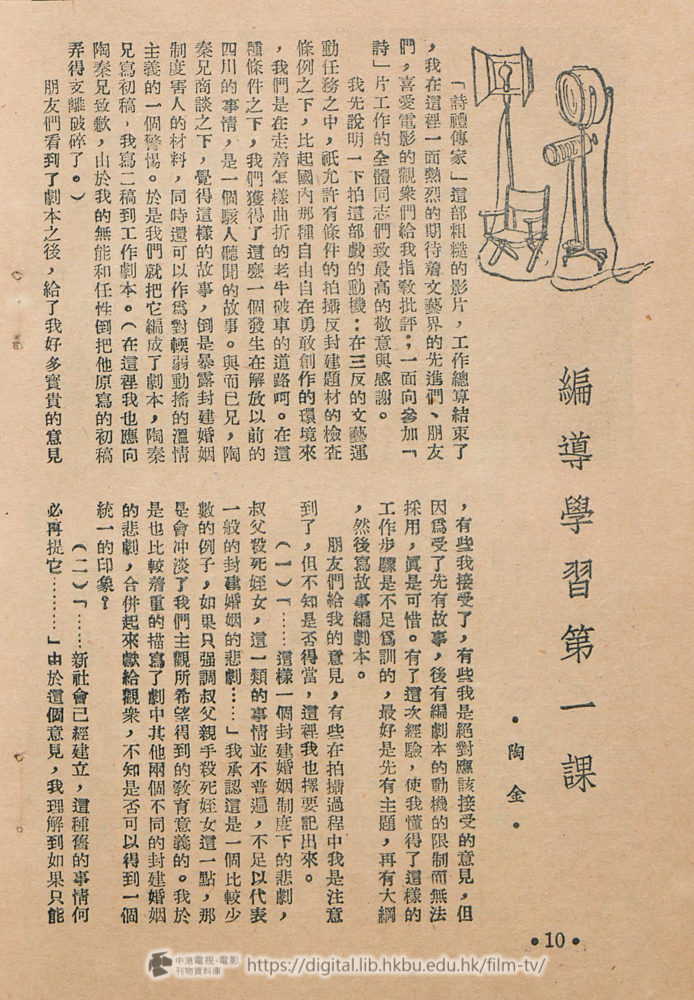 編導學習第一課
•陶金•
「詩禮傳家」這部粗糙的影片，工作總算結束了
，我在這裡一面熱烈的期待着文藝界的先進們、朋友
們，喜愛電影的觀衆們給我指敎批評；一面向參加「
詩」片工作的全體同志們致最高的敬意與感謝。
我先說明一下拍這部戲的動機：在三反的文藝運
動任務之中，祇允許有條件的拍攝反封建題材的檢查
條例之下，比起國內那種自由自在勇敢創作的環境來
，我們是在走着怎樣曲折的老牛破車的道路呵。在這
種條件之下，我們獲得了這麽一個發生在解放以前的
四川的事情，是一個駭人聽聞的故事。與而已兄，陶
秦兄商談之下，覺得這樣的故事，倒是暴露封建婚姻
制度害人的材料，同時還可以作爲對輭弱動搖的溫情
主義的一個警惕。於是我們就把它編成了劇本，陶秦
兄寫初稿，我寫二稿到工作劇本。（在這裡我也應向
陶秦兄致歉，由於我的無能和任性倒把他原寫的初稿
弄得支離破碎了。）
朋友們看到了劇本之後，給了我好多寶貴的意見
，有些我接受了，有些我是絕對應該接受的意見，但
因爲受了先有故事，後有編劇本的動機的限制而無法
採用，眞是可惜。有了這次經驗，使我懂得了這樣的
工作步驟是不足爲訓的，最好是先有主題，再有大綱
，然後寫故事編劇本。
朋友們給我的意見，有些在拍攝過程中我是注意
到了，但不知是否得當，這裡我也擇要記出來。
（一）「……這樣一個封建婚姻制度下的悲劇，
叔父殺死姪女，這一類的事情並不普遍，不足以代表
一般的封建婚姻的悲劇……」我承認這是一個比較少
數的例子，如果只强調叔父親手殺死姪女這一點，那
是會冲淡了我們主觀所希望得到的敎育意義的。我於
是也比較着重的描寫了劇中其他兩個不同的封建婚姻
的悲劇，合併起來獻給觀衆，不知是否可以得到一個
統一的印象？
（二）「……新社會已經建立，這種舊的事情何
必再提它………」由於這個意見，我理解到如果只能
•10•
中港電視•電影
刊物資料庫
https://digital.lib.hkbu.edu.hk/film-tv/